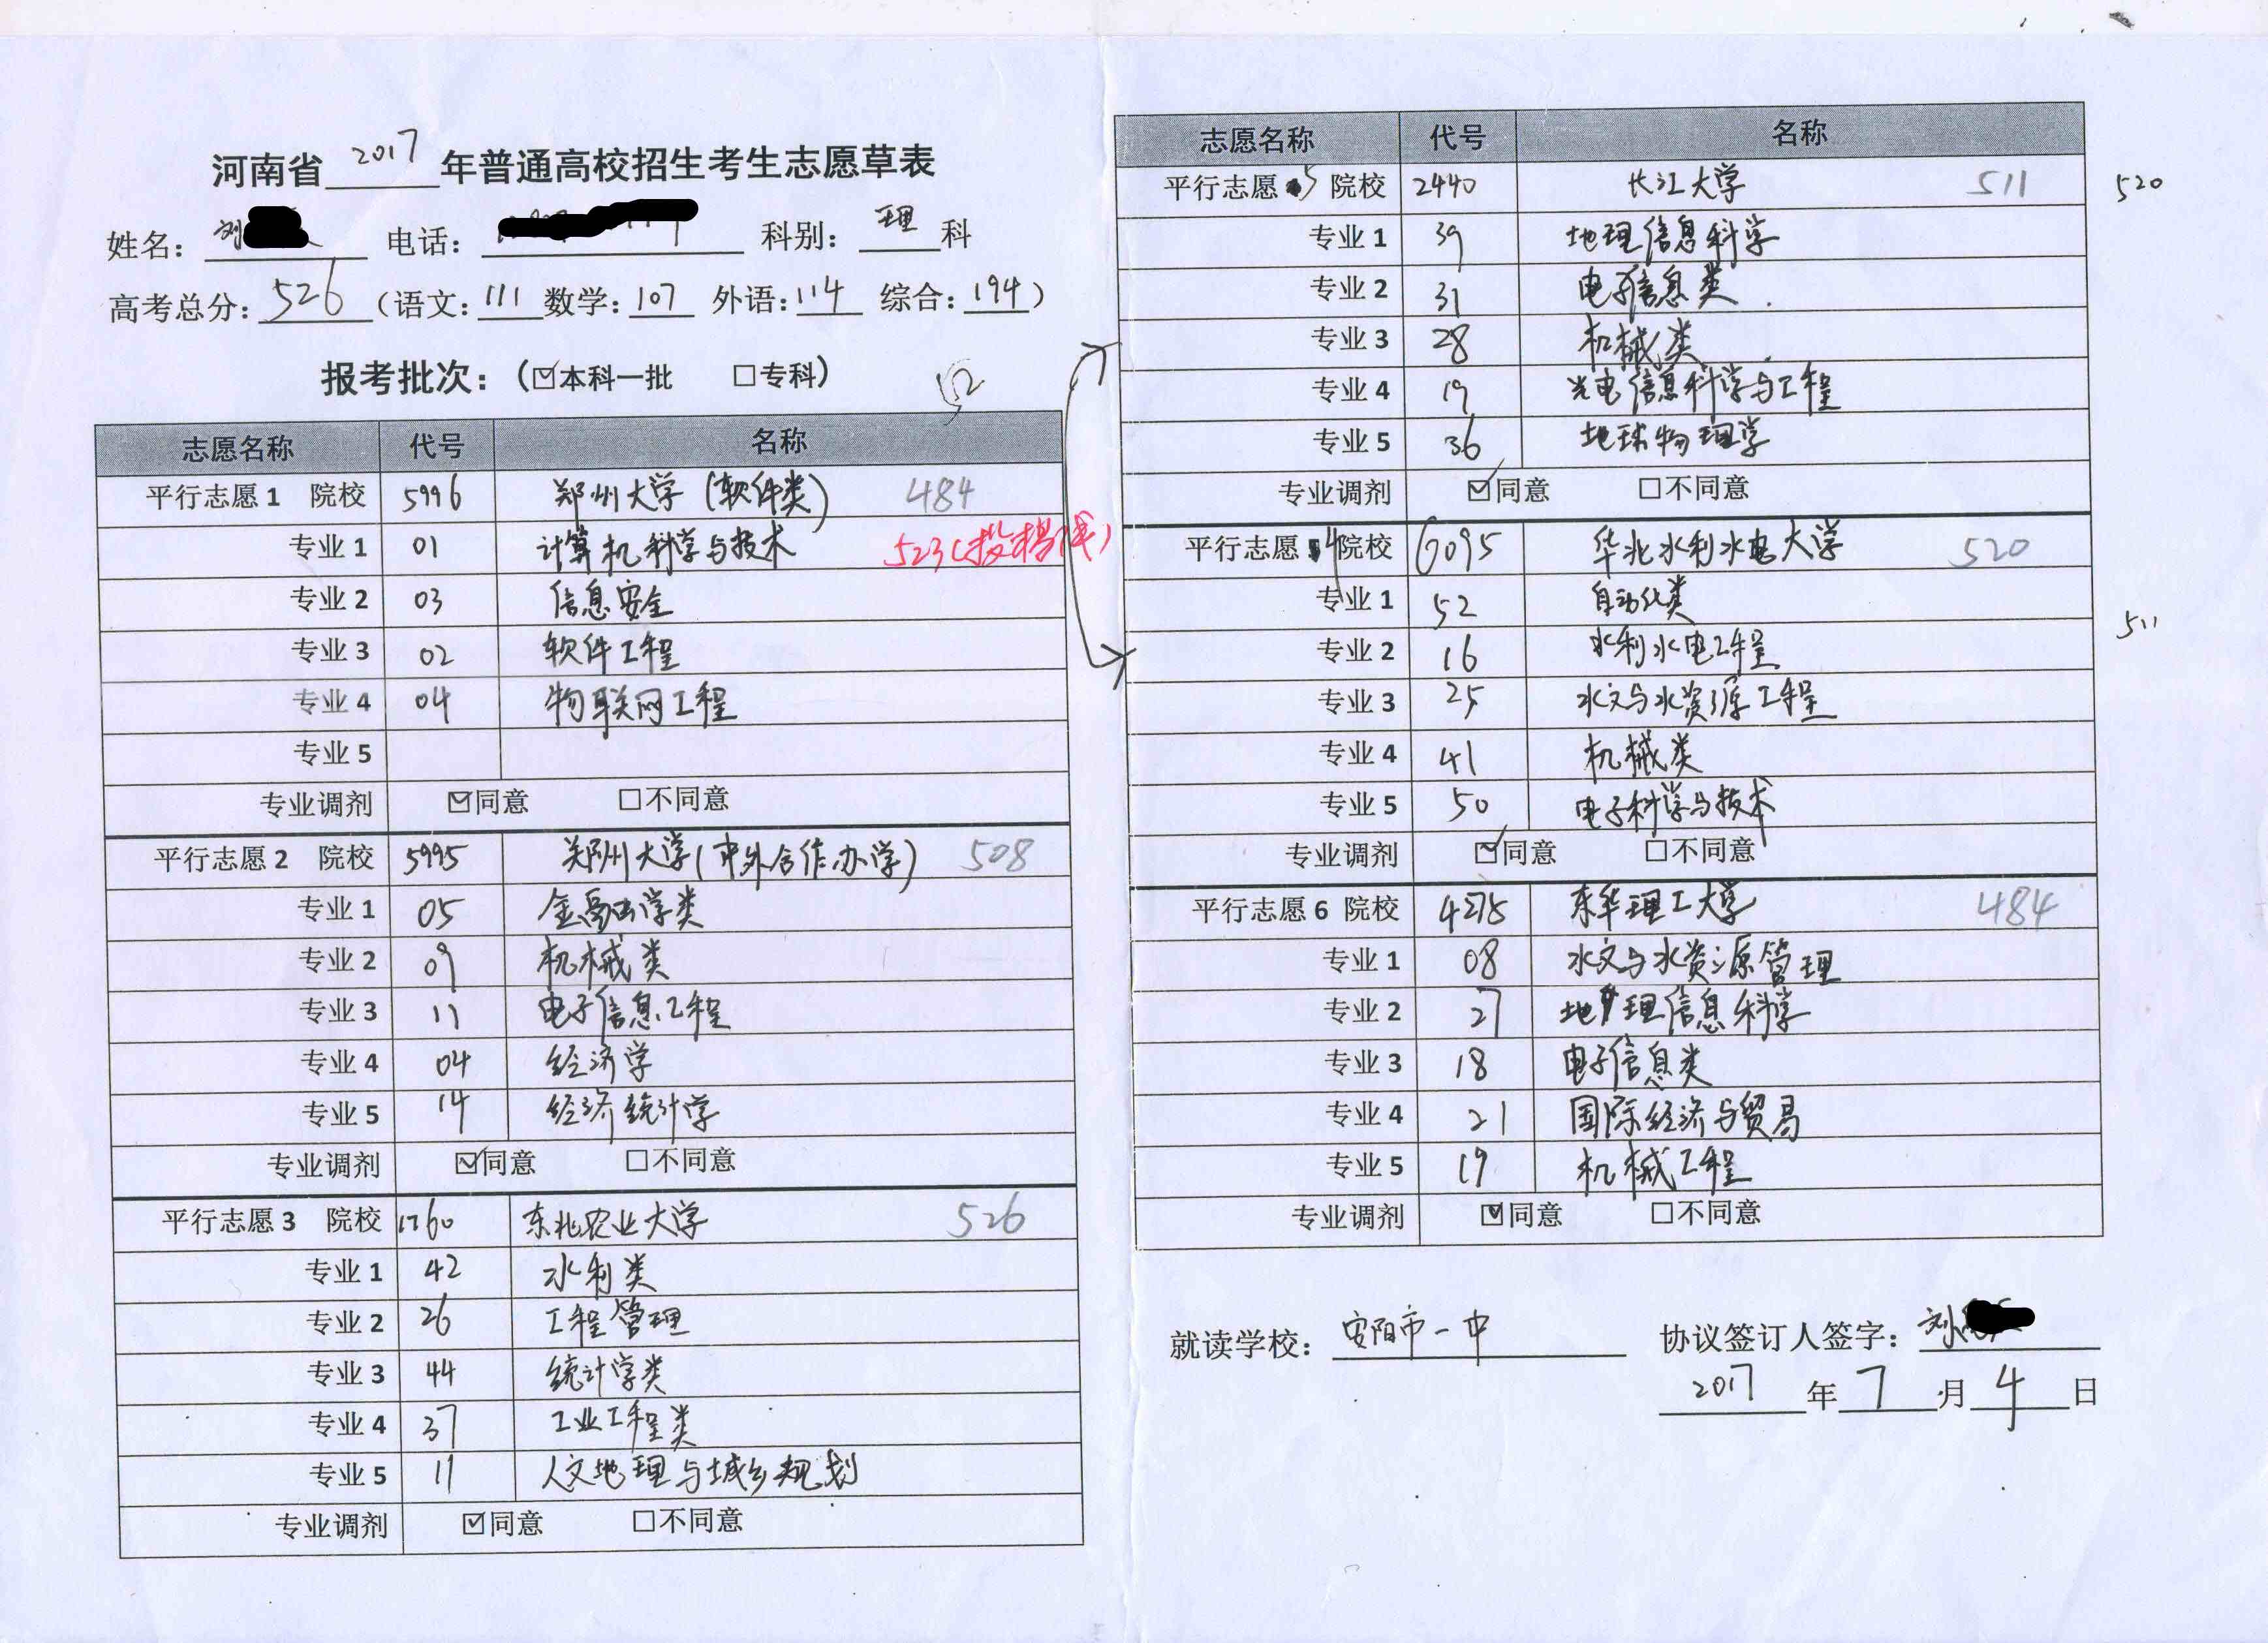 河南省 2017 年普通高校招生考生志愿草表
姓名： 刘 电话： 科别： 理 科
高考总分： 526 （语文： 111 数学： 107 外语： 114 综合： 194 ）
报考批次：（☑本科一批 □专科）
52
志愿名称 代号 名称
平行志愿 1 院校 5996 郑州大学（软件类） 484
专业 1 01 计算机科学与技术 523（投档线）
专业 2 03 信息安全
专业 3 02 软件工程
专业 4 04 物联网工程
专业 5
专业调剂 ☑同意 □不同意
平行志愿 2 院校 5995 郑州大学（中外合作办学） 508
专业 1 05 金融学类
专业 2 09 机械类
专业 3 11 电子信息工程
专业 4 04 经济学
专业 5 14 经济统计学
专业调剂 ☑同意 □不同意
平行志愿 3 院校 1760 东北农业大学 526
专业 1 42 水利类
专业 2 26 工程管理
专业 3 44 统计学类
专业 4 37 工业工程类
专业 5 11 人文地理与城乡规划
专业调剂 ☑同意 □不同意
志愿名称 代号 名称
平行志愿 5 院校 2440 长江大学 511 520
专业 1 39 地理信息科学
专业 2 31 电子信息类
专业 3 28 机械类
专业 4 19 光电信息科学与工程
专业 5 36 地球物理学
专业调剂 ☑同意 □不同意
平行志愿 4 院校 6095 华北水利水电大学 520
专业 1 52 自动化类 511
专业 2 16 水利水电工程
专业 3 25 水文与水资源工程
专业 4 41 机械类
专业 5 50 电子科学与技术
专业调剂 ☑同意 □不同意
平行志愿 6 院校 4275 东华理工大学 484
专业 1 08 水文与水资源管理
专业 2 27 地理信息科学
专业 3 18 电子信息类
专业 4 21 国际经济与贸易
专业 5 19 机械工程
专业调剂 ☑同意 □不同意
就读学校： 安阳市一中 协议签订人签字： 刘
2017 年 7 月 4 日